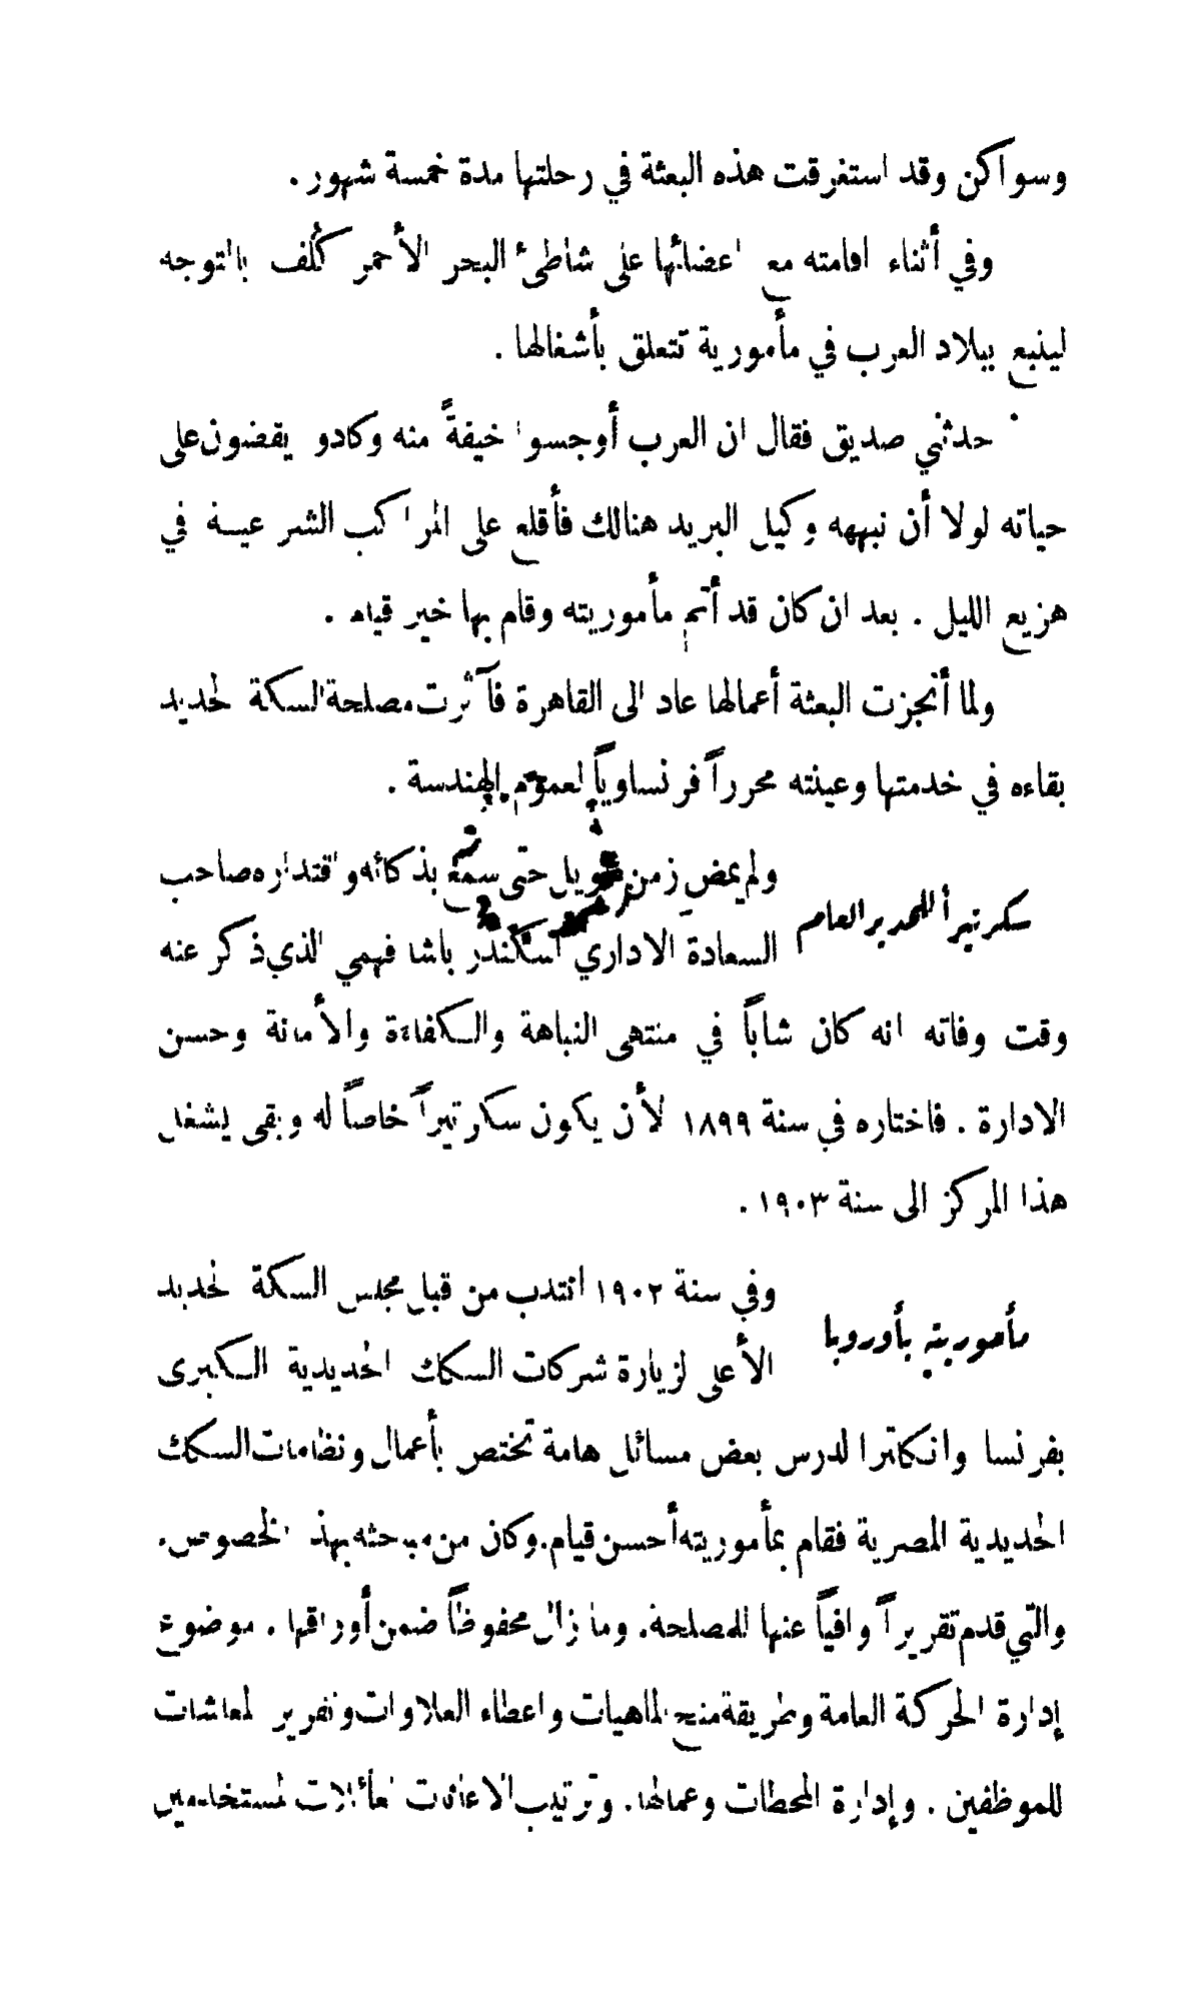 وسواكن وقد استغرقت هذه البعثة في رحلتها مدة خمسة شهور .
وفي أثناء اقامته مع اعضائها على شاطئ البحر الأحمر كُلف بالتوجه
لينبع ببلاد العرب في مأمورية تتعلق بأشغالها .
حدثني صديق فقال ان العرب أوجسوا خيفةً منه وكادو يقضون على
حياته لولا أن نبهه وكيل البريد هنالك فأقلع على المراكب الشراعية في
هزيع الليل . بعد ان كان قد أتم مأموريته وقام بها خير قيام .
ولما أنجزت البعثة أعمالها عاد الى القاهرة فآثرت مصلحة السكة الحديد
بقاءه في خدمتها وعينته محرراً فرنساوياً لعموم الهندسة .
سكرتيراً للمدير العام
ولم يمض زمن طويل حتى سمع بذكائه واقتداره صاحب
السعادة الاداري اسكندر باشا فهمي الذي ذكر عنه
وقت وفاته انه كان شاباً في منتهى النباهة والكفاءة والأمانة وحسن
الادارة . فاختاره في سنة ١٨٩٩ لأن يكون سكرتيراً خاصاً له وبقى يشغل
هذا المركز الى سنة ١٩٠٣ .
مأموريته بأوروبا
وفي سنة ١٩٠٢ انتدب من قبل مجلس السكة الحديد
الأعلى لزيارة شركات السكك الحديدية الكبرى
بفرنسا وانكلترا لدرس بعض مسائل هامة تختص بأعمال ونظامات السكك
الحديدية المصرية فقام بمأموريته أحسن قيام. وكان من مباحثه بهذا الخصوص.
والتي قدم تقريراً وافياً عنها للمصلحة. وما زال محفوظاً ضمن أوراقها . موضوع
إدارة الحركة العامة وطريقة منح الماهيات واعطاء العلاوات وتقرير المعاشات
للموظفين . وإدارة المحطات وعمالها. وترتيب الاعانات لعائلات المستخدمين